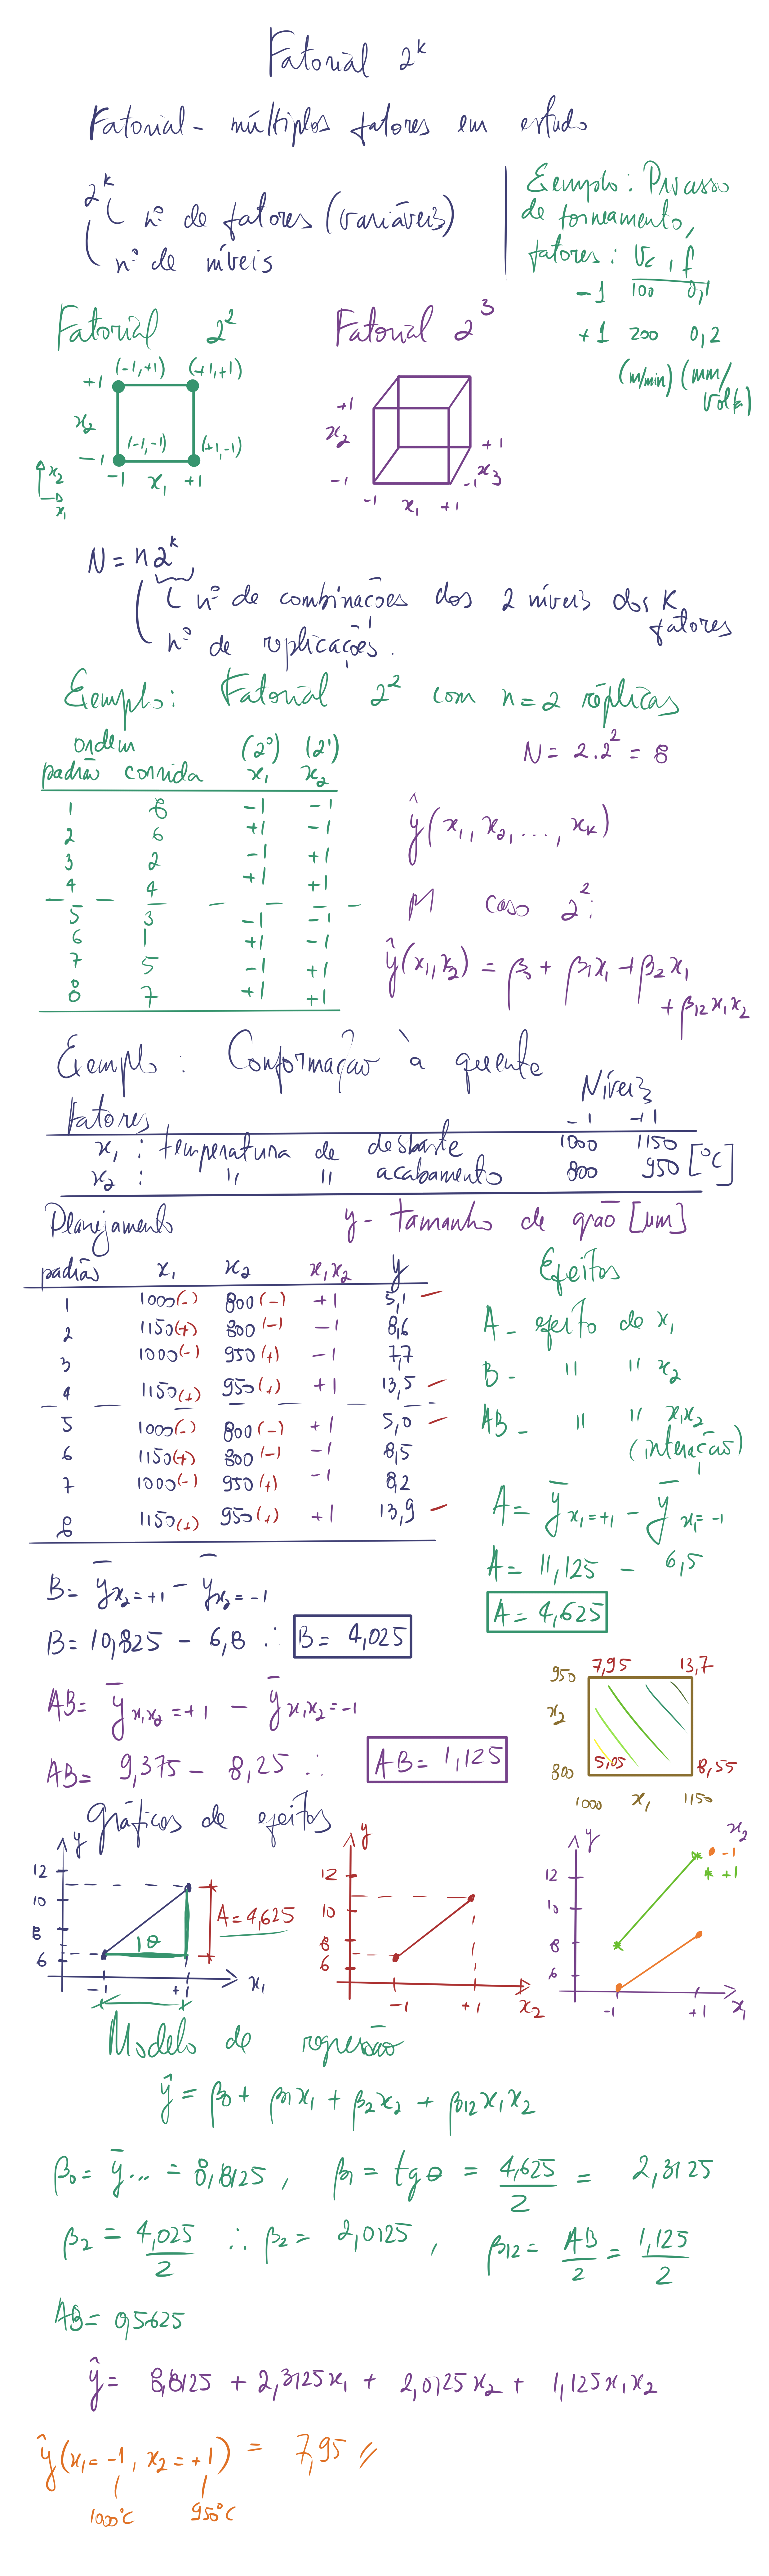 Fatorial 2^k
Fatorial - múltiplos fatores em estudo
2^k
nº de fatores (variáveis)
nº de níveis
Exemplo: Processo
de torneamento,
fatores: Vc, f
-1 100 0,1
+1 200 0,2
(m/min) (mm/
volta)
Fatorial 2^2
+1 (-1,+1) (+1,+1)
x2
-1 (-1,-1) (+1,-1)
-1 x1 +1
x2
x1
Fatorial 2^3
+1
x2
-1
-1 x1 +1
+1
x3
-1
N = n2^k
nº de combinações dos 2 níveis dos K
fatores
nº de replicações.
Exemplo: Fatorial 2^2 com n=2 réplicas
N = 2.2^2 = 8
ordem (2^0) (2^1)
padrão corrida x1 x2
1 8 -1 -1
2 6 +1 -1
3 2 -1 +1
4 4 +1 +1
5 3 -1 -1
6 1 +1 -1
7 5 -1 +1
8 7 +1 +1
ŷ(x1, x2, ..., xk)
p/ caso 2^2:
ŷ(x1,x2) = β0 + β1x1 + β2x1
+ β12x1x2
Exemplo: Conformação à quente
Fatores Níveis
-1 +1
x1: temperatura de desbaste 1000 1150
x2: " " acabamento 800 950 [°C]
Planejamento y - tamanho de grão [μm]
padrão x1 x2 x1x2 y
1 1000(-) 800(-) +1 5,1
2 1150(+) 800(-) -1 8,6
3 1000(-) 950(+) -1 7,7
4 1150(+) 950(+) +1 13,5
5 1000(-) 800(-) +1 5,0
6 1150(+) 800(-) -1 8,5
7 1000(-) 950(+) -1 8,2
8 1150(+) 950(+) +1 13,9
Efeitos
A - efeito de x1
B - " " x2
AB - " " x1x2
(interação)
A = ȳx1=+1 - ȳx1=-1
A = 11,125 - 6,5
A = 4,625
B = ȳx2=+1 - ȳx2=-1
B = 10,825 - 6,8 ∴ B = 4,025
AB = ȳx1x2=+1 - ȳx1x2=-1
AB = 9,375 - 8,25 ∴ AB = 1,125
950 7,95 13,7
x2
800 5,05 8,55
1000 x1 1150
gráficos de efeitos
y
12
10
8
6
θ
A = 4,625
-1 +1 x1
y
12
10
8
6
-1 +1 x2
y
12
10
8
6
-1 +1 x1
x2
-1
+1
Modelo de regressão
ŷ = β0 + β1x1 + β2x2 + β12x1x2
β0 = ȳ... = 8,8125, β1 = tgθ = 4,625/2 = 2,3125
β2 = 4,025/2 ∴ β2 = 2,0125, β12 = AB/2 = 1,125/2
AB = 0,5625
ŷ = 8,8125 + 2,3125x1 + 2,0125x2 + 1,125x1x2
ŷ(x1=-1, x2=+1) = 7,95 //
1000°C 950°C